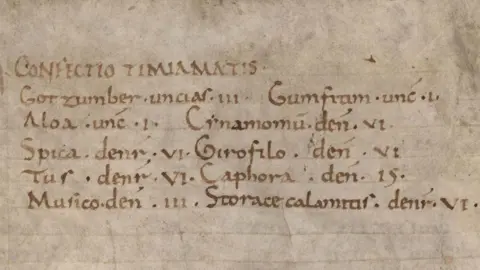 CONFECTIO TIMIAMATIS
Gotzumber · uncias · III Gumfitam · unc̄ · I ·
Aloa · unc̄ · I · Cynamomū · den̄ · VI ·
Spica · denr̄ · VI · Girofilo · den̄ · VI
Tus · denr̄ · VI · Caphora · den̄ · 15 ·
Musico · den̄ · III · Storace calamitis · denr̄ · VI ·